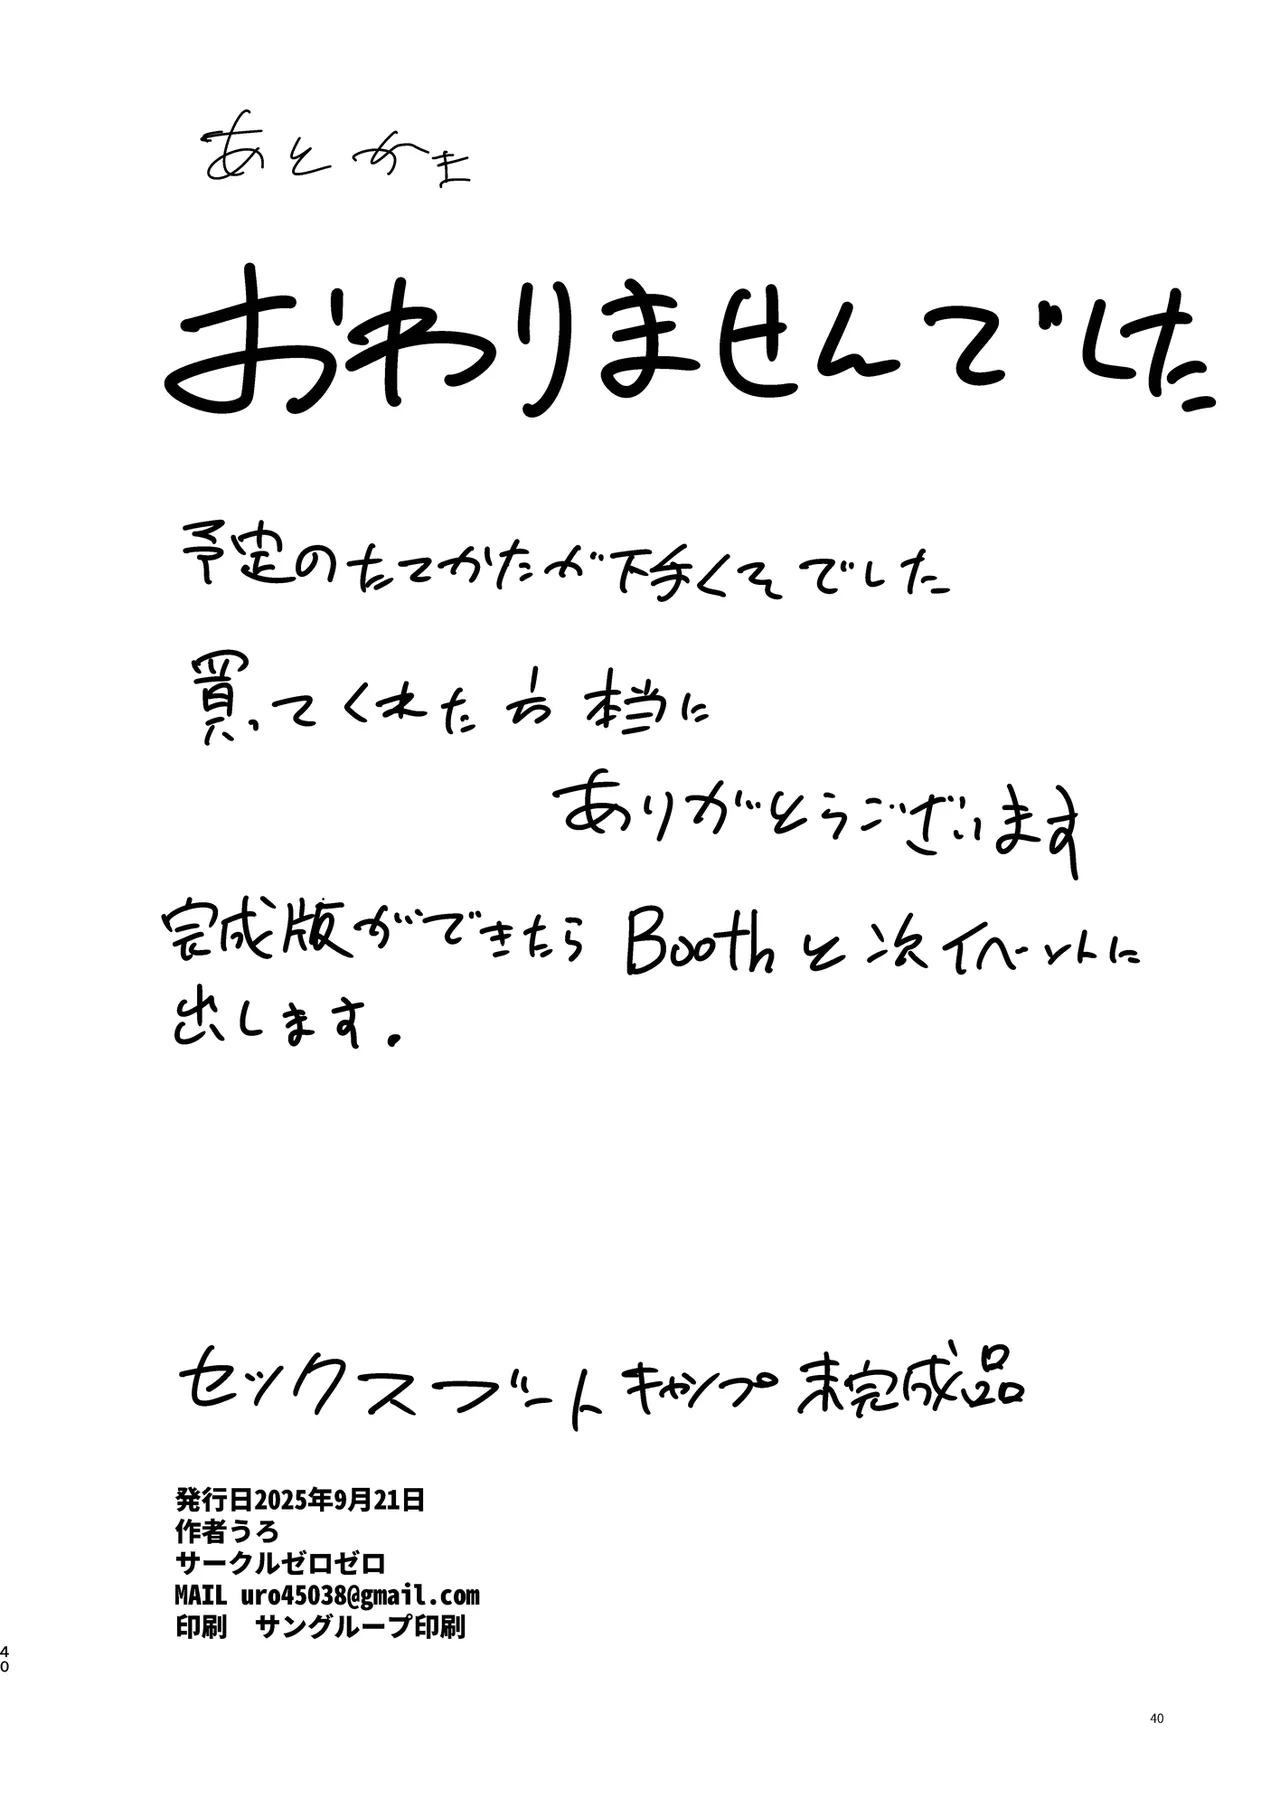 あとがき
おわりませんでした
予定のたてかたが下手くそでした
買ってくれた方本当に
ありがとうございます
完成版ができたらBoothと次イベントに
出します.
セックスブートキャンプ未完成品
発行日2025年9月21日
作者うろ
サークルゼロゼロ
MAIL uro45038@gmail.com
印刷　サングループ印刷
40
40